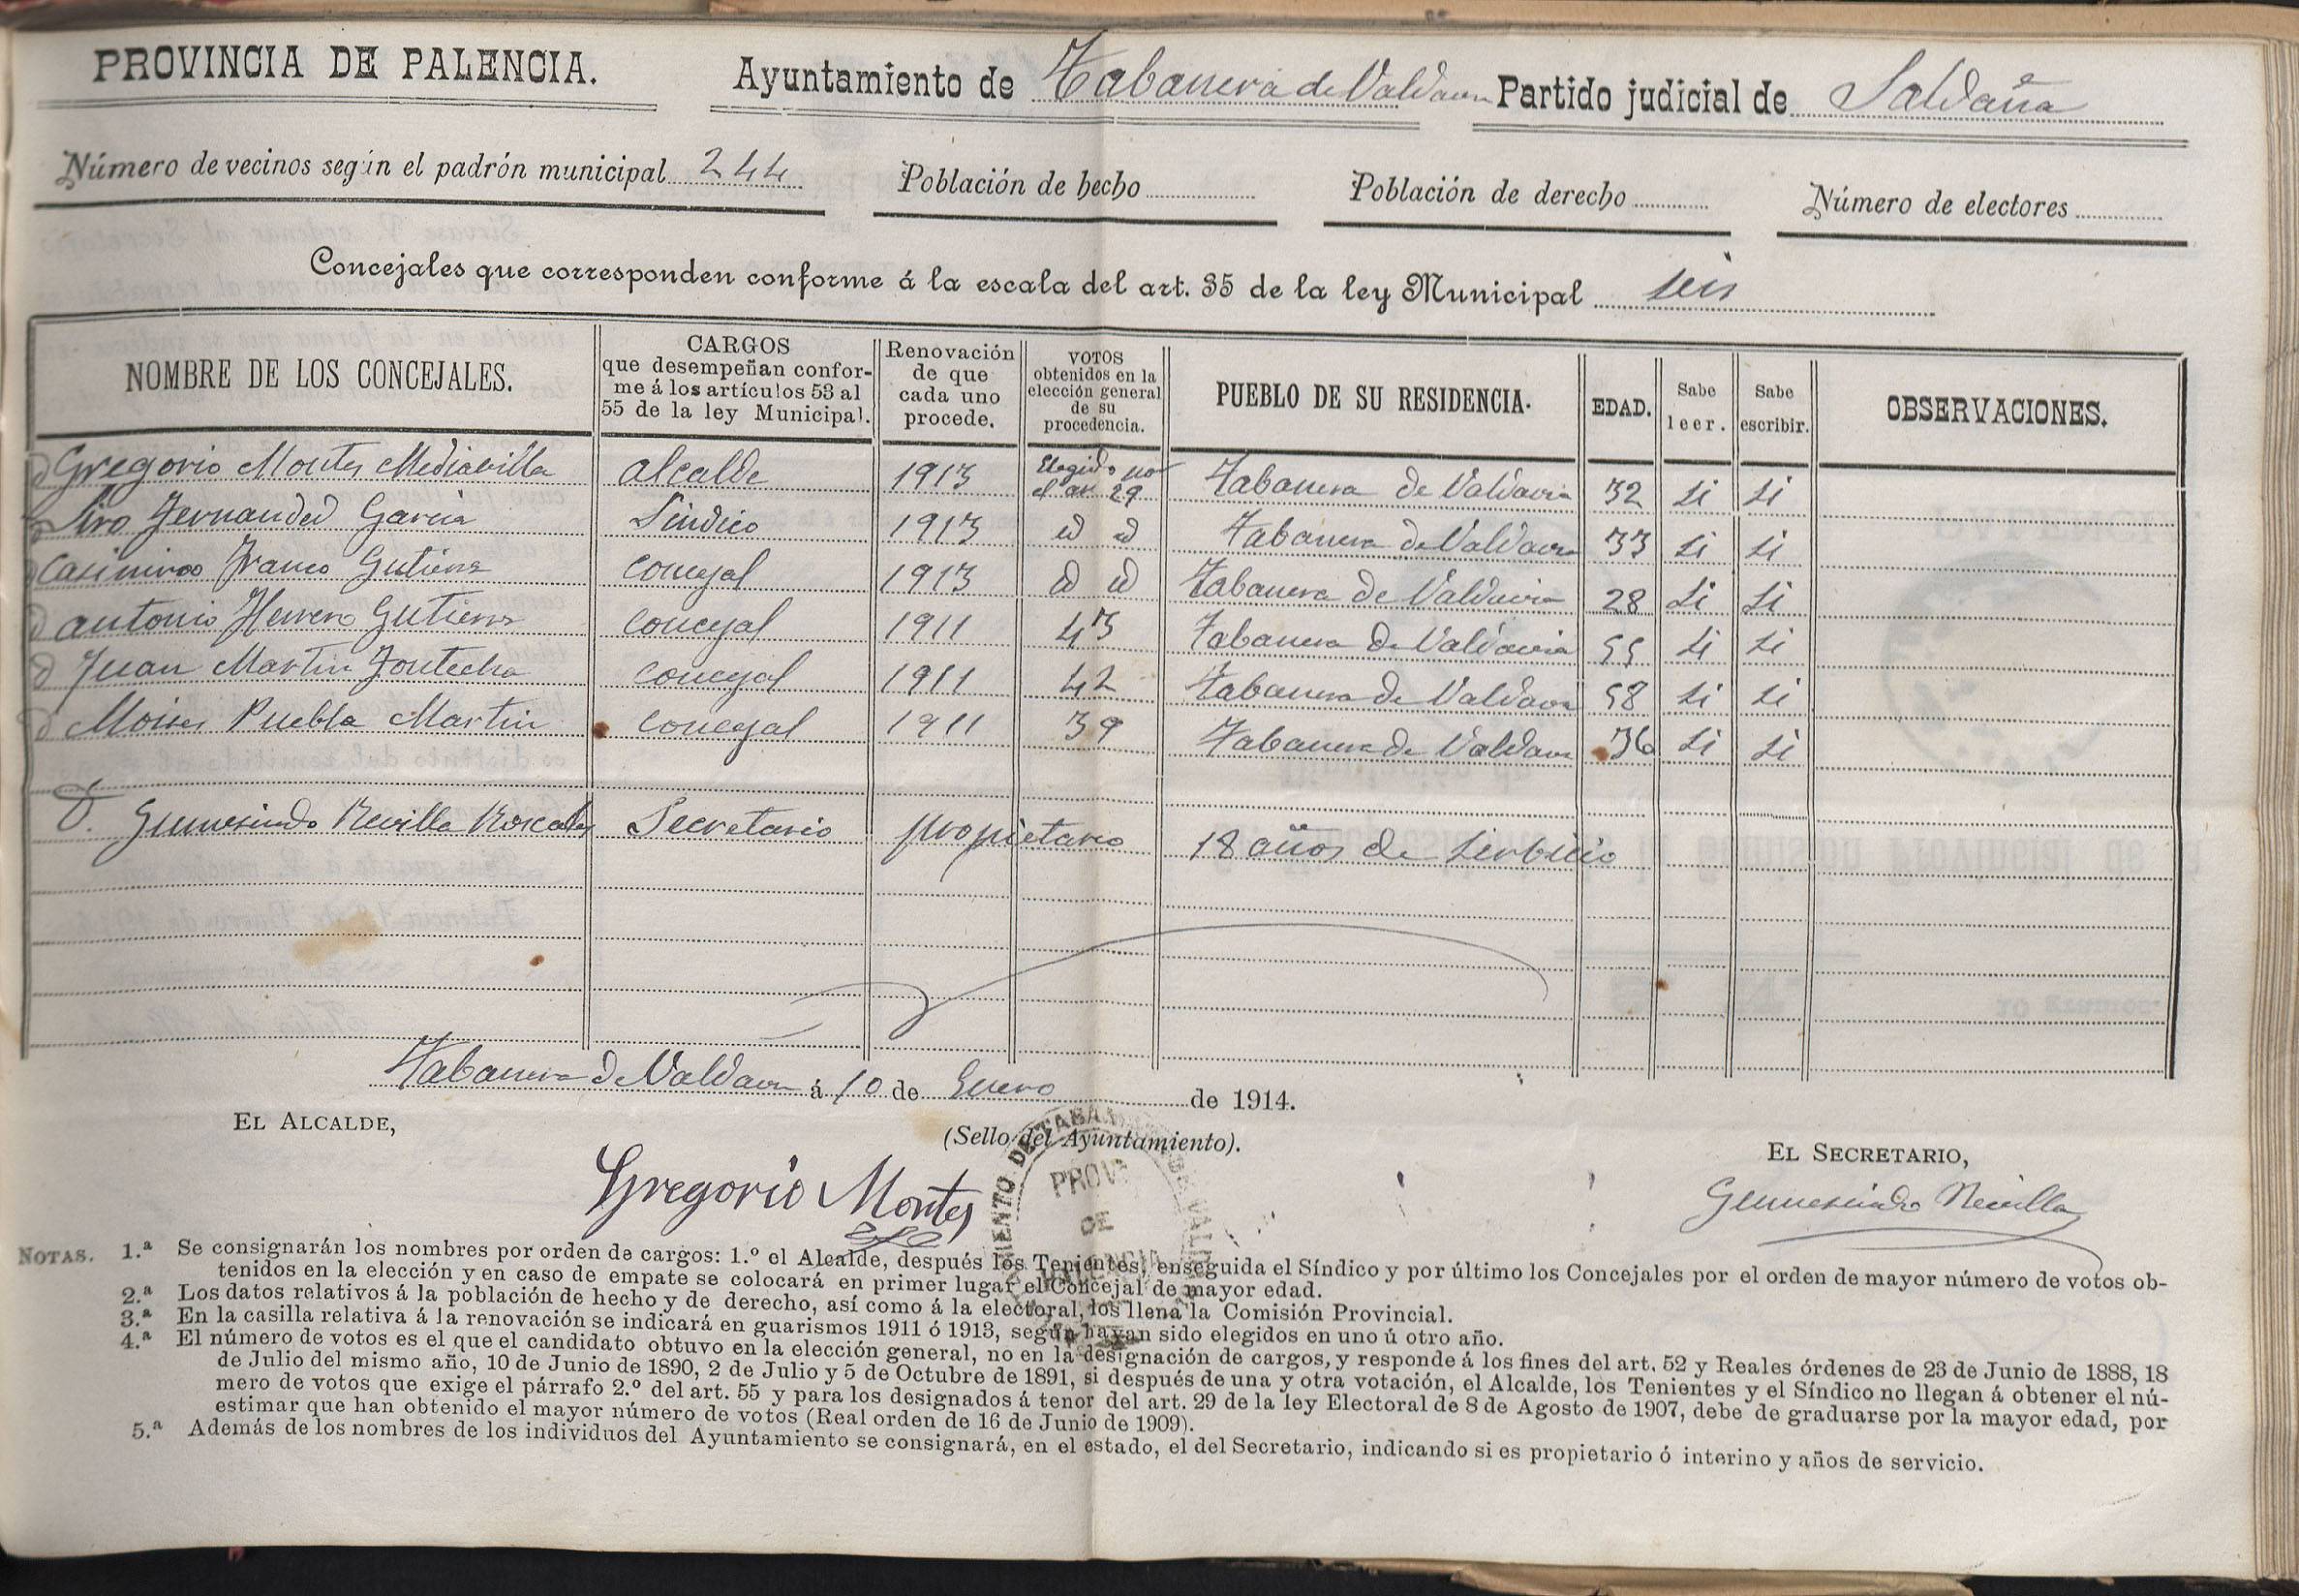 PROVINCIA DE PALENCIA. Ayuntamiento de Tabanera de Valdavia Partido judicial de Saldaña
Número de vecinos según el padrón municipal 244 Población de hecho Población de derecho Número de electores
Concejales que corresponden conforme á la escala del art. 35 de la ley Municipal seis
NOMBRE DE LOS CONCEJALES. CARGOS que desempeñan conforme á los artículos 53 al 55 de la ley Municipal. Renovación de que cada uno procede. VOTOS obtenidos en la elección general de su procedencia. PUEBLO DE SU RESIDENCIA. EDAD. Sabe leer. Sabe escribir. OBSERVACIONES.
D Gregorio Montes Mediavilla alcalde 1913 Elegido por el art 29 Tabanera de Valdavia 32 Si Si
D Siro Fernanded Garcia Sindico 1913 id id Tabanera de Valdavia 33 Si Si
D Casimiro Franco Gutierrez concejal 1913 id id Tabanera de Valdavia 28 Si Si
D antonio Herrero Gutierrez concejal 1911 43 Tabanera de Valdavia 55 Si Si
D Juan Martin Fontecha concejal 1911 42 Tabanera de Valdavia 58 Si Si
D Moises Puebla Martin concejal 1911 39 Tabanera de Valdavia 36 Si Si
D. Gumersindo Revilla Roscales Secretario propietario 18 años de serbicio
Tabanera de Valdavia á 10 de Enero de 1914.
EL ALCALDE, (Sello del Ayuntamiento). EL SECRETARIO,
Gregorio Montes Gumersindo Revilla
PROV
DE
NOTAS. 1.ª Se consignarán los nombres por orden de cargos: 1.º el Alcalde, después los Tenientes, enseguida el Síndico y por último los Concejales por el orden de mayor número de votos ob-
tenidos en la elección y en caso de empate se colocará en primer lugar el Concejal de mayor edad.
2.ª Los datos relativos á la población de hecho y de derecho, así como á la electoral, los llena la Comisión Provincial.
3.ª En la casilla relativa á la renovación se indicará en guarismos 1911 ó 1913, según hayan sido elegidos en uno ú otro año.
4.ª El número de votos es el que el candidato obtuvo en la elección general, no en la designación de cargos, y responde á los fines del art. 52 y Reales órdenes de 23 de Junio de 1888, 18
de Julio del mismo año, 10 de Junio de 1890, 2 de Julio y 5 de Octubre de 1891, si después de una y otra votación, el Alcalde, los Tenientes y el Síndico no llegan á obtener el nú-
mero de votos que exige el párrafo 2.º del art. 55 y para los designados á tenor del art. 29 de la ley Electoral de 8 de Agosto de 1907, debe de graduarse por la mayor edad, por
estimar que han obtenido el mayor número de votos (Real orden de 16 de Junio de 1909).
5.ª Además de los nombres de los individuos del Ayuntamiento se consignará, en el estado, el del Secretario, indicando si es propietario ó interino y años de servicio.